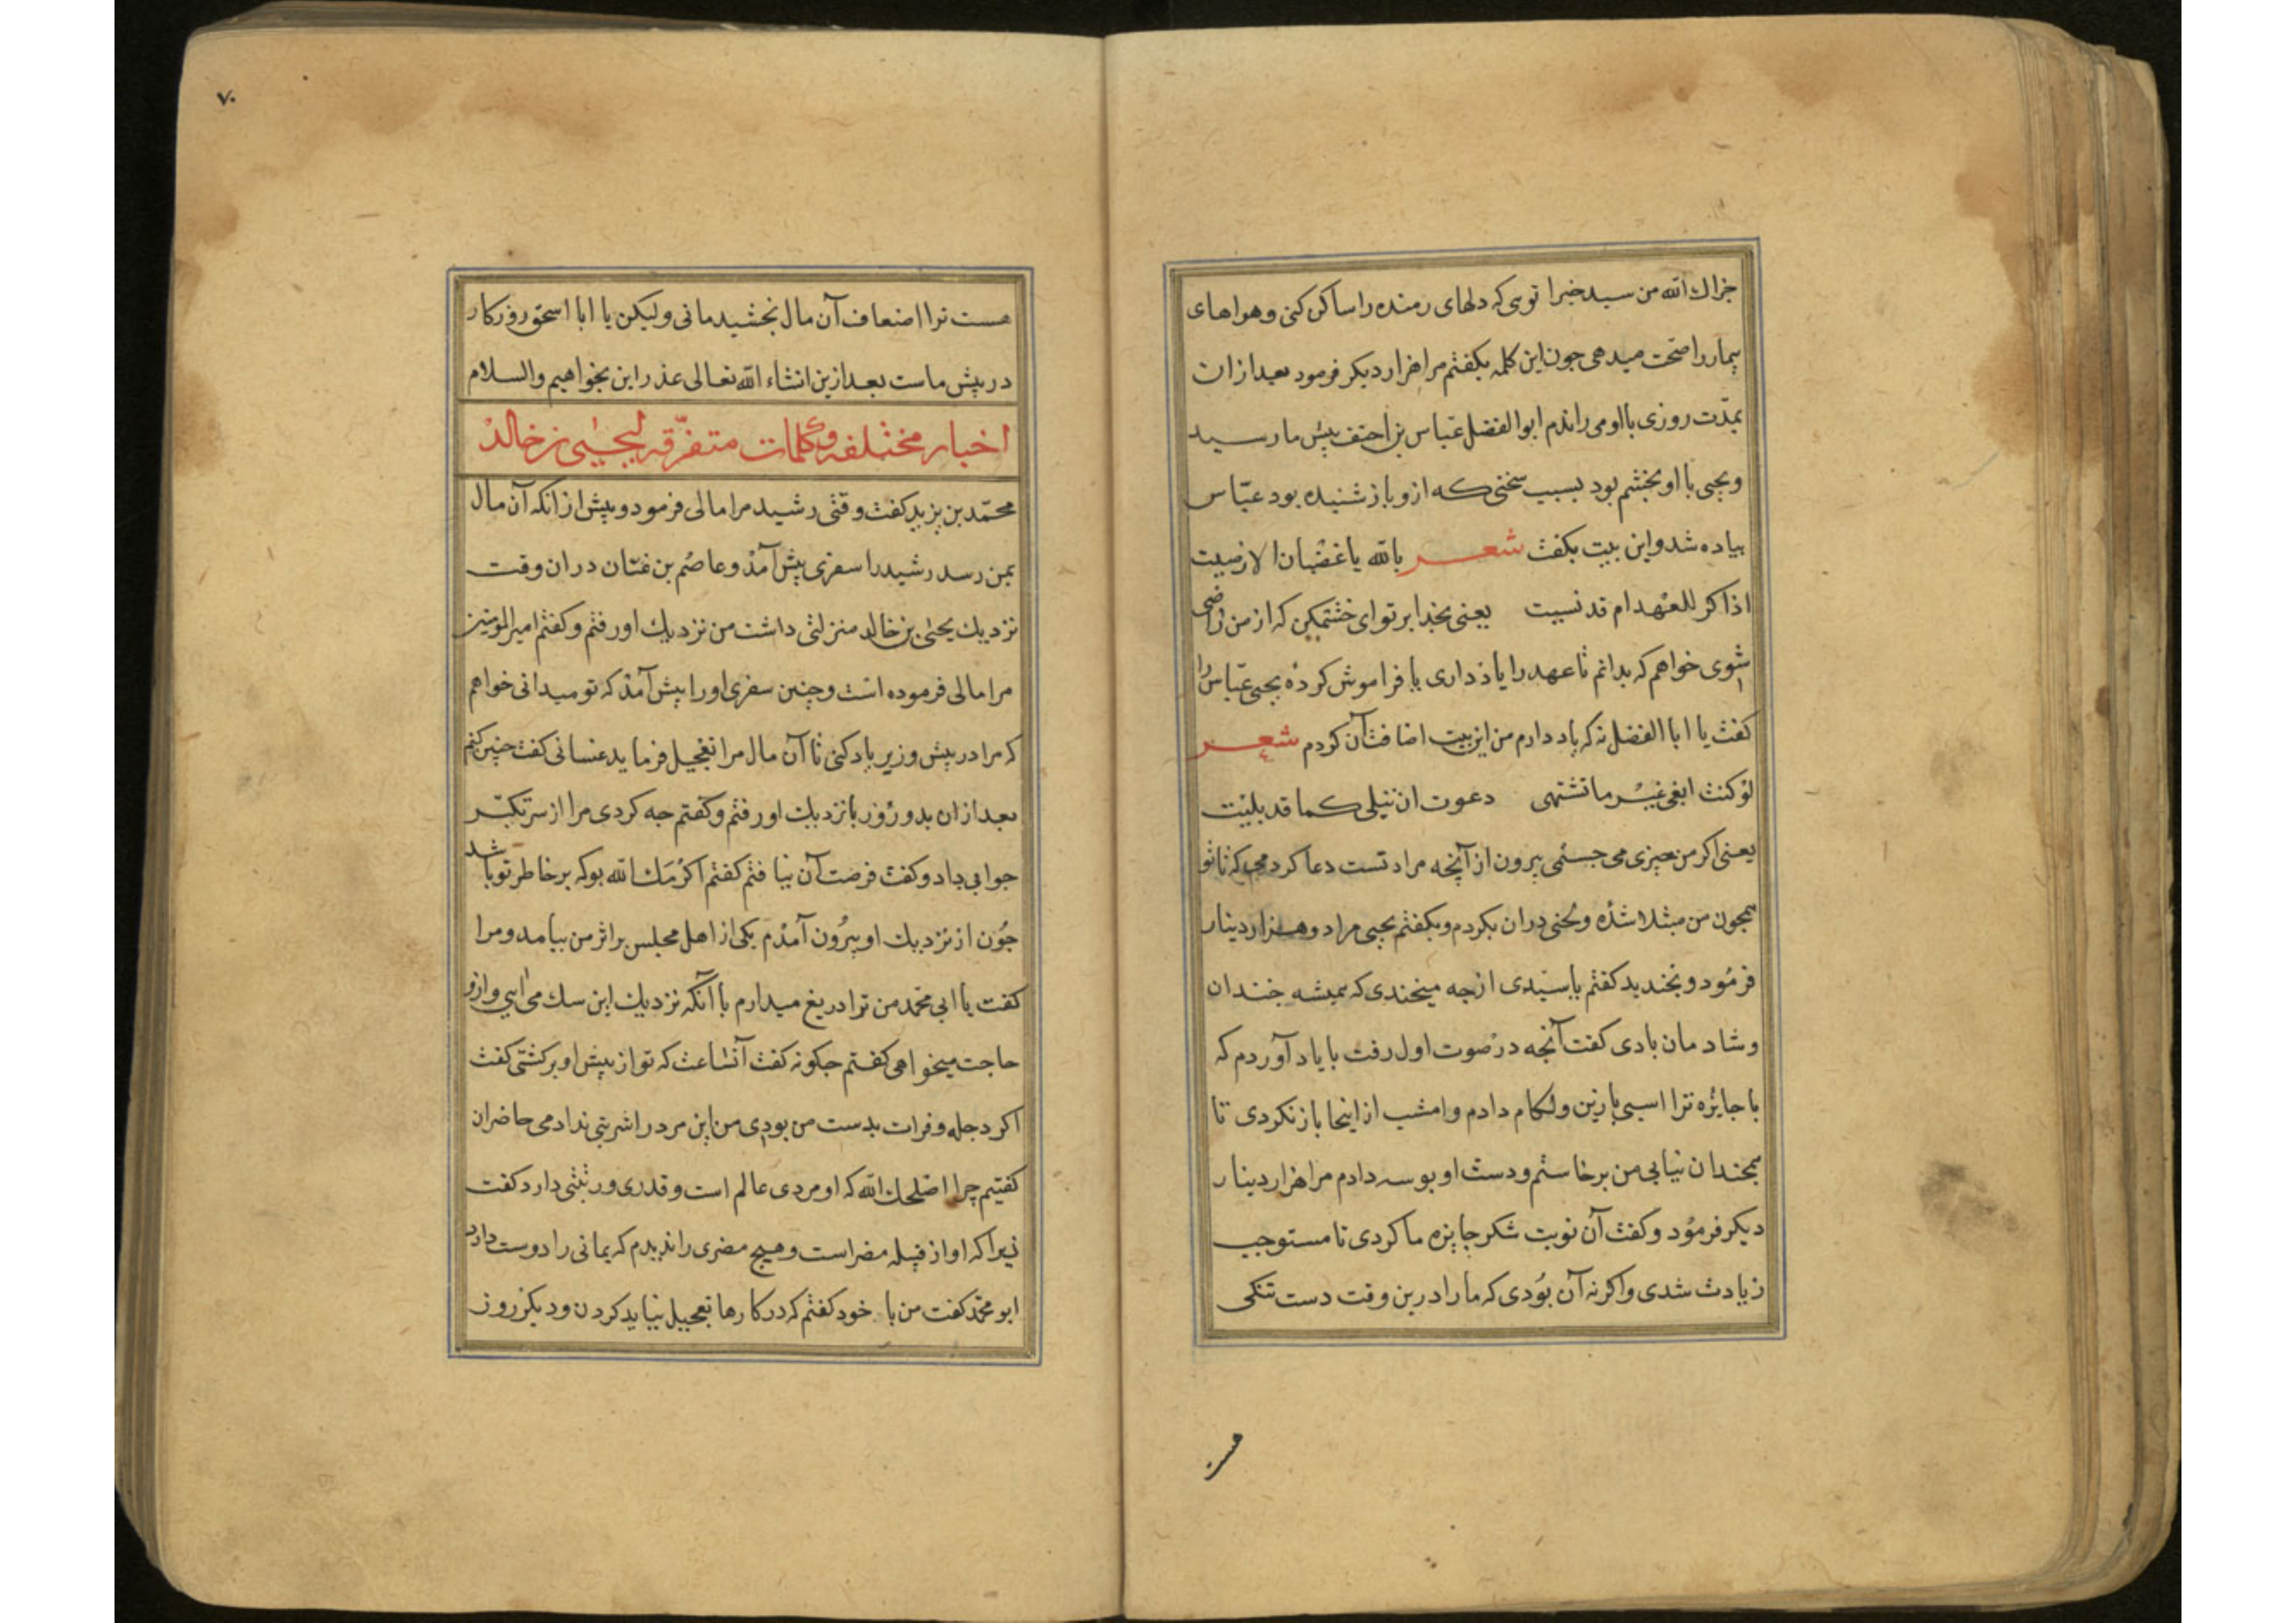 جزاك الله من سید خیرا توی که دلهای رمنده را ساکن کنی وهواهای
بیمار را صحت میدهی جون این کلمه بکفتم مرا هزار دیکر فرمود بعد ازان
بمدّت روزی با او می راندم ابو الفضل عبّاس بن احنف پیش ما رسید
ویحیی با او بخشم بود بسبب سخنی که ازو باز شنیده بود عبّاس
بیاده شد واین بیت بکفت شعر بالله یا غضبان الا رضیت
اذاکر للعهد ام قد نسیت یعنی بخدا بر تو ای خشتمکین که از من راضی
شوی خواهم که بدانم تا عهد را یاذ داری یا فراموش کرده یحیی عبّاس را
کفت یا ابا الفضل نه که یاد دارم من این بیت اضافت آن کردم شعر
لو کنت ابغی غیر ما تشتهی دعوت ان تبلی کما قد بلیت
یعنی اکر من چیزی می جستمی بیرون از آنچه مراد تست دعا کردمی که تا تو
همجون من مبتلا شذه ولحنی دران بکردم وبکفتم یحیی مرا دو هزار دینار
فرمود وبخندید کفتم یا سیدی از جه میخندی که همیشه خندان
وشادمان بادی کفت آنجه در صوت اول رفت با یاد آوردم که
با جایزه ترا اسبی با زین ولکام دادم وامشب از اینجا باز نکردی تا
همجندان نیابی من برخاستم ودست او بوسه دادم مرا هزار دینار
دیکر فرمود وکفت آن نوبت شکر جایزه ما کردی تا مستوجب
زیادت شدی واکر نه آن بودی که ما را درین وقت دست تنکی
هست
٧٠
هست ترا اضعاف آن مال بخشیدمانی ولیکن یا ابا اسحق روزکار
در پیش ماست بعد ازین انشاء الله تعالی عذر این بخواهیم والسلام
اخبار مختلفه وکلمات متفرّقه لیحیی بن خالد
محمّد بن یزید کفت وقتی رشید مرا مالی فرمود وپیش از انکه آن مال
بمن رسد رشید را سفری پیش آمذ وعاصم بن غسّان دران وقت
نزدیك یحیی بن خالد منزلتی داشت من نزدیك او رفتم وکفتم امیر المومنین
مرا مالی فرموده است وچنین سفری اورا پیش آمذ که تو میدانی خواهم
که مرا در پیش وزیر یاد کنی تا آن مال مرا تعجیل فرماید غسانی کفت چنین کنم
بعد ازان بدو روز با نزدیك او رفتم وکفتم جه کردی مرا از سر تکبّر
جوابی داد وکفت فرصت آن نیافتم کفتم اکرمك الله بو که بر خاطر تو باشد
جون از نزدیك او بیرون آمذم یکی از اهل مجلس بر اثر من بیامد ومرا
کفت یا ابی محمد من ترا دریغ میدارم با آنکه نزدیك این سك می آیی وازو
حاجت میخواهی کفتم جکونه کفت آنساعت که تو از پیش او برکشتی کفت
اکر دجله وفرات بدست من بودی من این مرد را شربتی ندادمی حاضران
کفتیم چرا اصلحك الله که او مردی عالم است وقدری ورتبتی دارد کفت
زیرا که او از قبیله مضر است وهیچ مضری را ندیدم که یمانی را دوست دارد
ابو محمّد کفت من با خود کفتم که در کارها تعجیل نباید کردن ودیکر روز